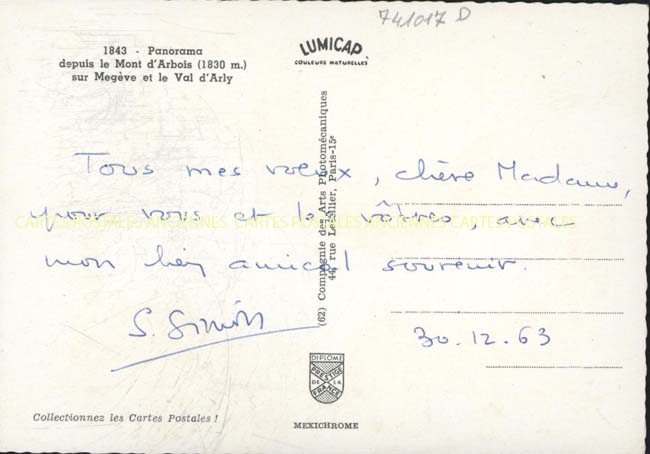 741017 D
1843 - Panorama
depuis le Mont d'Arbois (1830 m.)
sur Megève et le Val d'Arly
LUMICAP
COULEURS NATURELLES
Tous mes vœux, chère Madame,
pour vous et les vôtres, avec
mon bien amical souvenir.
S. Simon
30.12.63
CARTES POSTALES ANCIENNES CARTES POSTALES ANCIENNES CARTES POSTALES
(62) Compagnie des Arts Photomécaniques
44, rue Letellier, Paris-15e
DIPLOME
PRESTIGE
DE LA
FRANCE
Collectionnez les Cartes Postales !
MEXICHROME